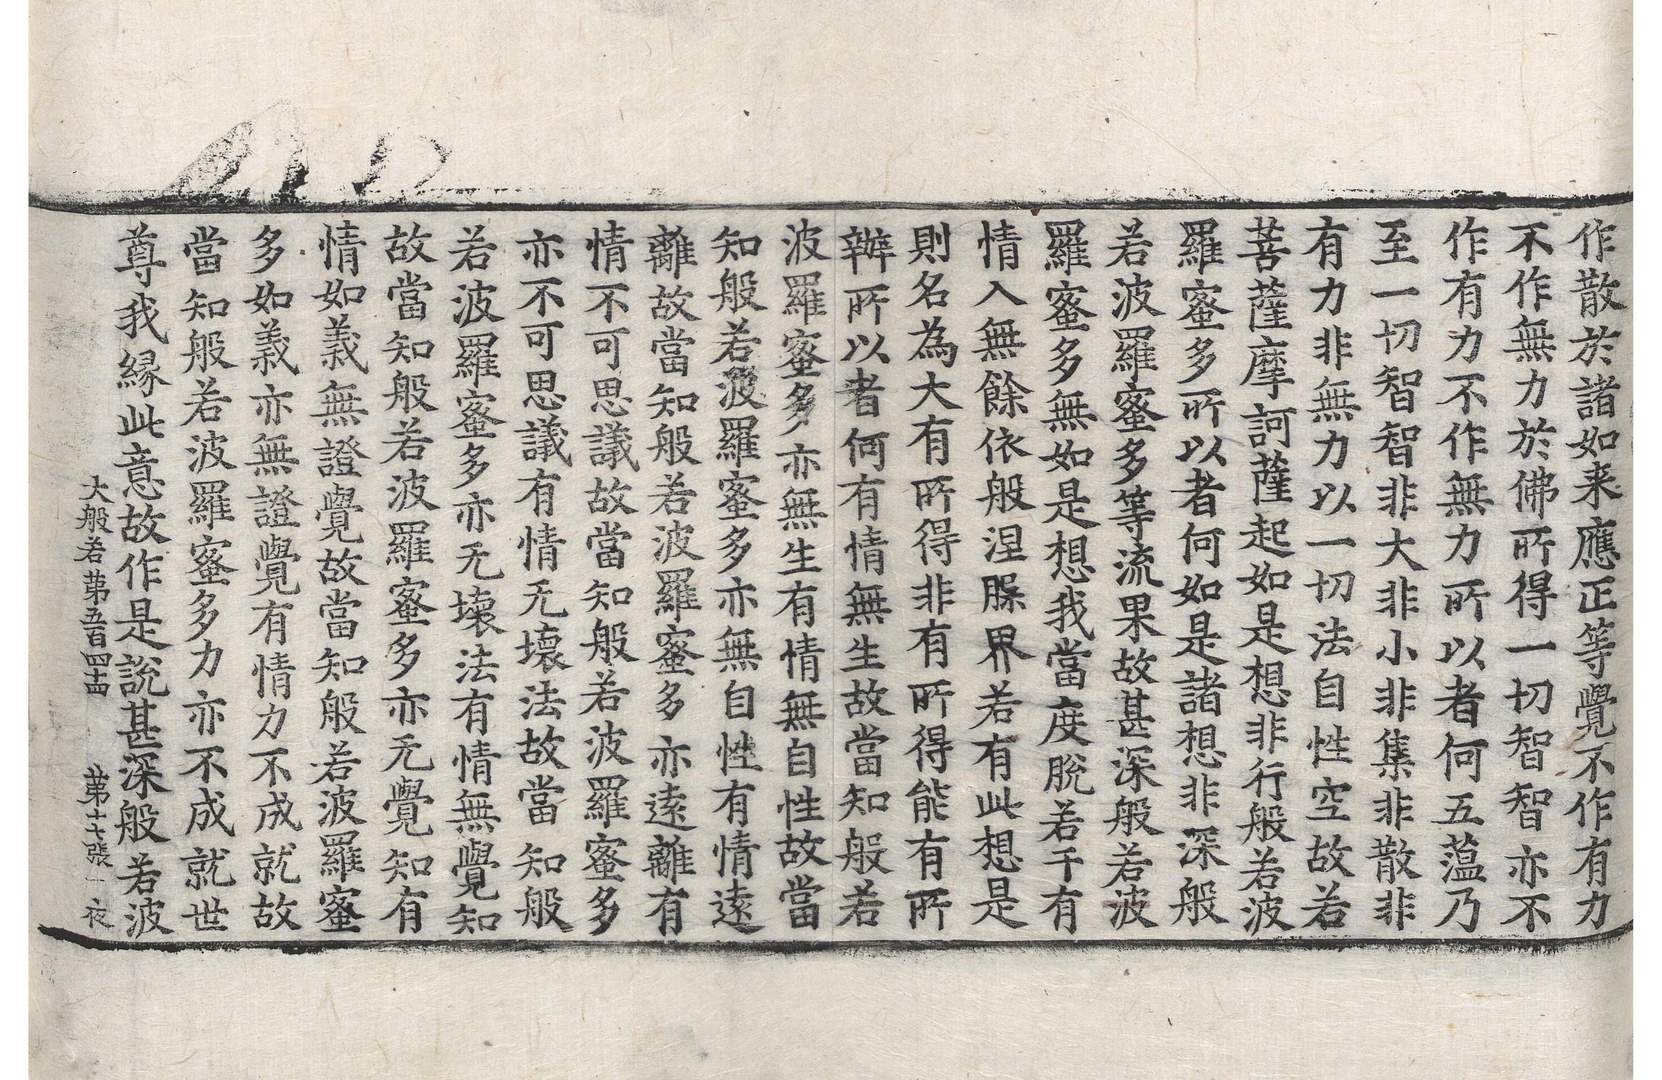 作散於諸如来應正等覺不作有力
不作無力於佛所得一切智智亦不
作有力不作無力所以者何五蕴乃
至一切智智非大非小非集非散非
有力非無力以一切法自性空故若
菩薩摩訶薩起如是想非行般若波
羅蜜多所以者何如是諸想非深般
若波羅蜜多等流果故甚深般若波
羅蜜多無如是想我當度脫若干有
情入無餘依般涅槃界若有此想是
則名為大有所得非有所得能有所
辦所以者何有情無生故當知般若
波羅蜜多亦無生有情無自性故當
知般若波羅蜜多亦無自性有情遠
離故當知般若波羅蜜多亦遠離有
情不可思議故當知般若波羅蜜多
亦不可思議有情无壞法故當知般
若波羅蜜多亦无壞法有情無覺知
故當知般若波羅蜜多亦无覺知有
情如義無證覺故當知般若波羅蜜
多如義亦無證覺有情力不成就故
當知般若波羅蜜多力亦不成就世
尊我緣此意故作是說甚深般若波
大般若第五百四十四 第十七張 夜